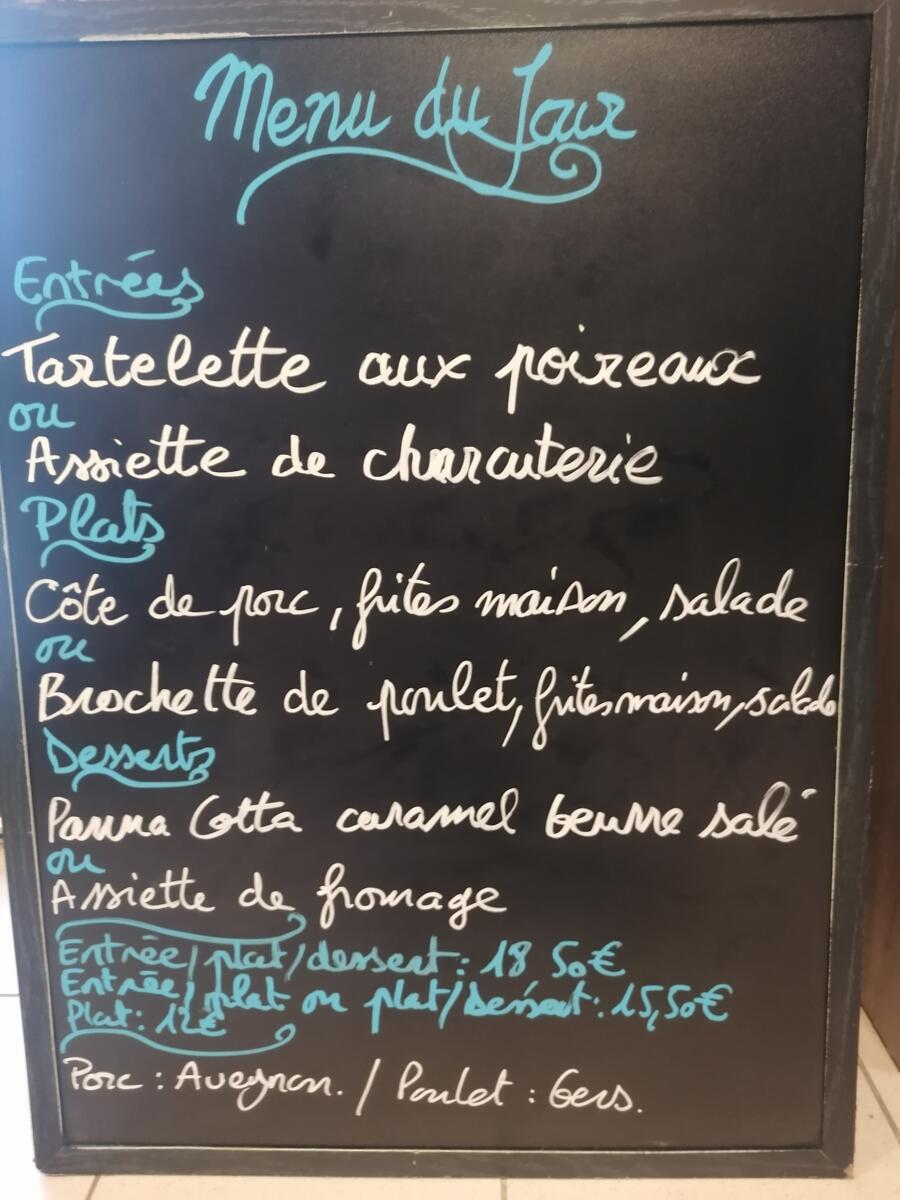 Menu du Jour
Entrées
Tartelette aux poireaux
ou
Assiette de charcuterie
Plats
Côte de porc, frites maison, salade
ou
Brochette de poulet, frites maison, salade
Desserts
Panna Cotta caramel beurre salé
ou
Assiette de fromage
Entrée/plat/dessert: 18 50€
Entrée/plat ou plat/dessert: 15,50€
Plat: 12€
Porc : Aveyron. / Poulet : Gers.